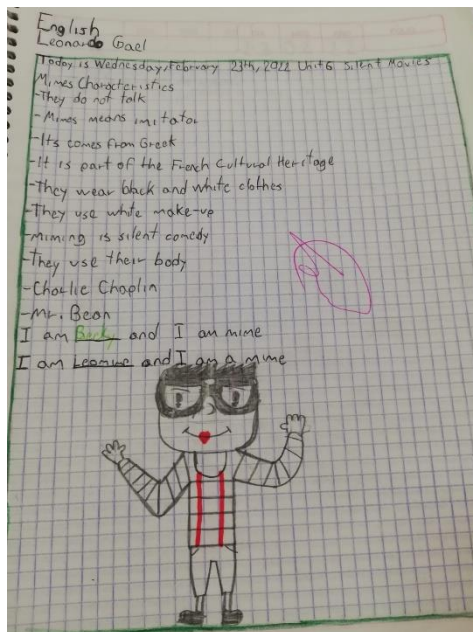 English
Leonardo Gael
Today is Wednesday, February 23th, 2022 Unit 6 Silent Movies
Mimes Characteristics
-They do not talk
-Mimes means imitator
-Its comes from Greek
-It is part of the French Cultural Heritage
-They wear black and white clothes
-They use white make-up
-Miming is silent comedy
-They use their body
-Charlie Chaplin
-Mr. Bean
I am and I am mime
I am and I am a mime